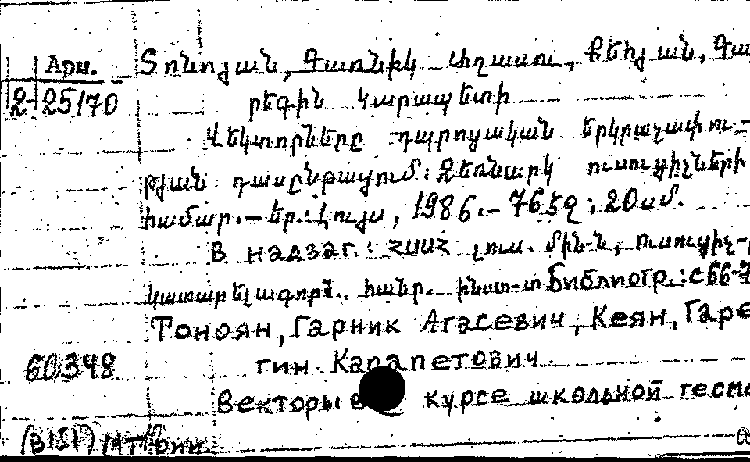 Арм.
2-25170
Տոնոյան, Գառնիկ Աղասու, Քեիյան, Գա
րեգին Կարապետի
Վեկտորները դպրոցական երկրաչափու-
թյան դասընթացում: Ձեռնարկ ուսուցիչների
համար.— Եր.: Լույս, 1986.— 76 էջ; 20 սմ.
В надзаг.: ՀՍՍՀ լուս. մին-ն, ուսուցիչ-
կատարելագործ. հանր. ինստ-տ Библиогр.: с 66-7
Тоноян, Гарник Агасевич, Кеян, Гаре
60348
гин Карапетович
Векторы в курсе школьной геом